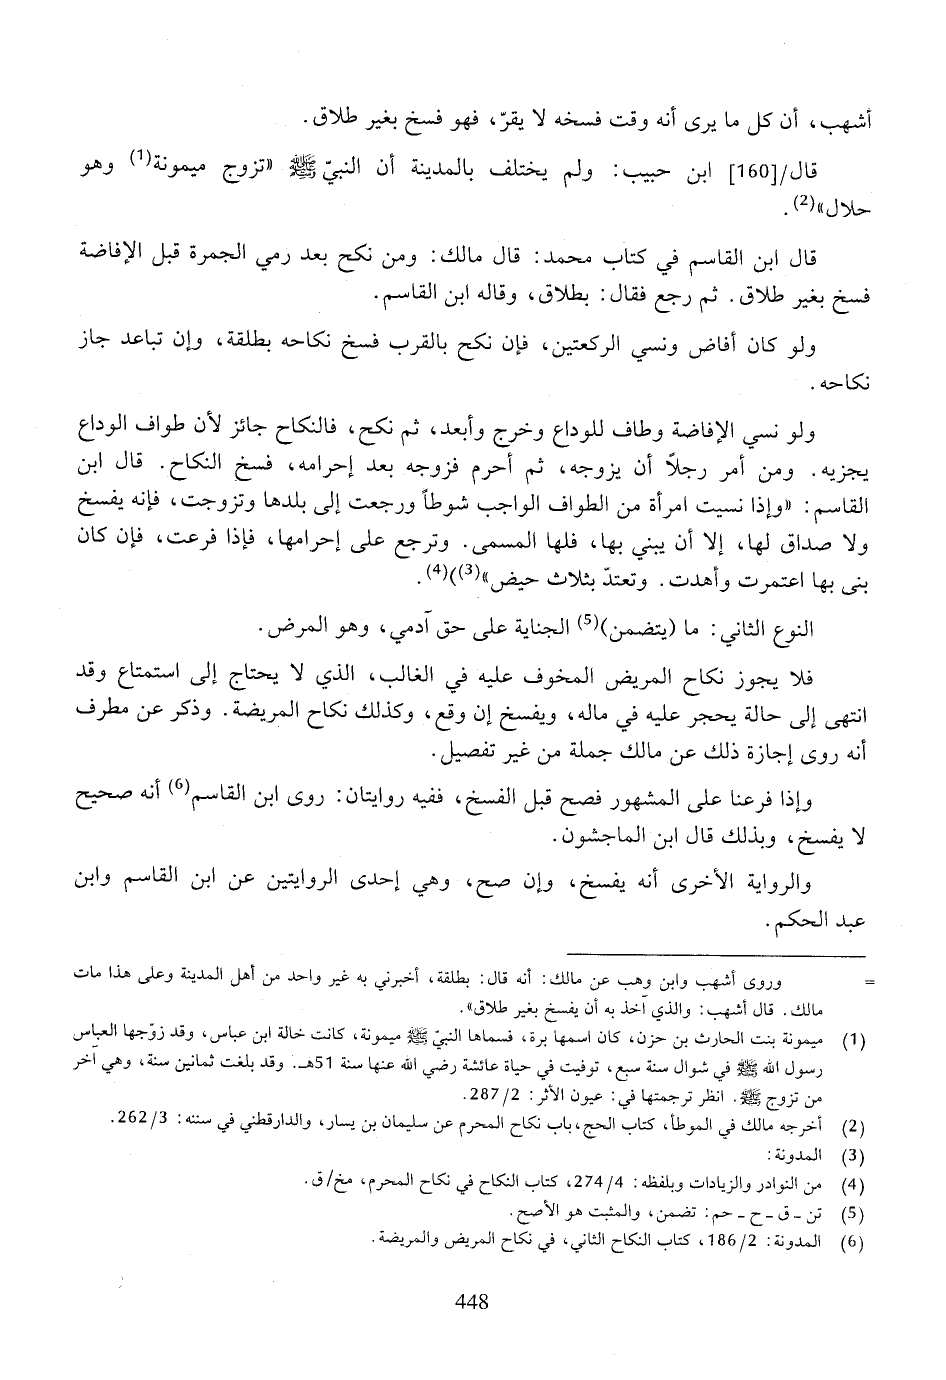 أشهب، أن كل ما يرى أنه وقت فسخه لا يقرّ، فهو فسخ بغير طلاق.
قال/[160] ابن حبيب: ولم يختلف بالمدينة أن النبيّ ﷺ «تزوج ميمونة(1) وهو
حلال»(2).
قال ابن القاسم في كتاب محمد: قال مالك: ومن نكح بعد رمي الجمرة قبل الإفاضة
فسخ بغير طلاق. ثم رجع فقال: بطلاق، وقاله ابن القاسم.
ولو كان أفاض ونسي الركعتين، فإن نكح بالقرب فسخ نكاحه بطلقة، وإن تباعد جاز
نكاحه.
ولو نسي الإفاضة وطاف للوداع وخرج وأبعد، ثم نكح، فالنكاح جائز لأن طواف الوداع
يجزيه. ومن أمر رجلاً أن يزوجه، ثم أحرم فزوجه بعد إحرامه، فسخ النكاح. قال ابن
القاسم: «وإذا نسيت امرأة من الطواف الواجب شوطاً ورجعت إلى بلدها وتزوجت، فإنه يفسخ
ولا صداق لها، إلا أن يبني بها، فلها المسمى. وترجع على إحرامها، فإذا فرعت، فإن كان
بنى بها اعتمرت وأهدت. وتعتدّ بثلاث حيض»(3))(4).
النوع الثاني: ما (يتضمن)(5) الجناية على حق آدمي، وهو المرض.
فلا يجوز نكاح المريض المخوف عليه في الغالب، الذي لا يحتاج إلى استمتاع وقد
انتهى إلى حالة يحجر عليه في ماله، ويفسخ إن وقع، وكذلك نكاح المريضة. وذكر عن مطرف
أنه روى إجازة ذلك عن مالك جملة من غير تفصيل.
وإذا فرعنا على المشهور فصح قبل الفسخ، ففيه روايتان: روى ابن القاسم(6) أنه صحيح
لا يفسخ، وبذلك قال ابن الماجشون.
والرواية الأخرى أنه يفسخ، وإن صح، وهي إحدى الروايتين عن ابن القاسم وابن
عبد الحكم.
= وروى أشهب وابن وهب عن مالك: أنه قال: بطلقة، أخبرني به غير واحد من أهل المدينة وعلى هذا مات
مالك. قال أشهب: والذي آخذ به أن يفسخ بغير طلاق».
(1) ميمونة بنت الحارث بن حزن، كان اسمها برة، فسماها النبيّ ﷺ ميمونة، كانت خالة ابن عباس، وقد زوّجها العباس
رسول الله ﷺ في شوال سنة سبع، توفيت في حياة عائشة رضي الله عنها سنة 51هـ. وقد بلغت ثمانين سنة، وهي آخر
من تزوج ﷺ. انظر ترجمتها في: عيون الأثر: 2/287.
(2) أخرجه مالك في الموطأ، كتاب الحج، باب نكاح المحرم عن سليمان بن يسار، والدارقطني في سننه: 3/262.
(3) المدونة:
(4) من النوادر والزيادات وبلفظه: 4/274، كتاب النكاح في نكاح المحرم، مخ/ق.
(5) تن - ق - ح - حم: تضمن، والمثبت هو الأصح.
(6) المدونة: 2/186، كتاب النكاح الثاني، في نكاح المريض والمريضة.
448